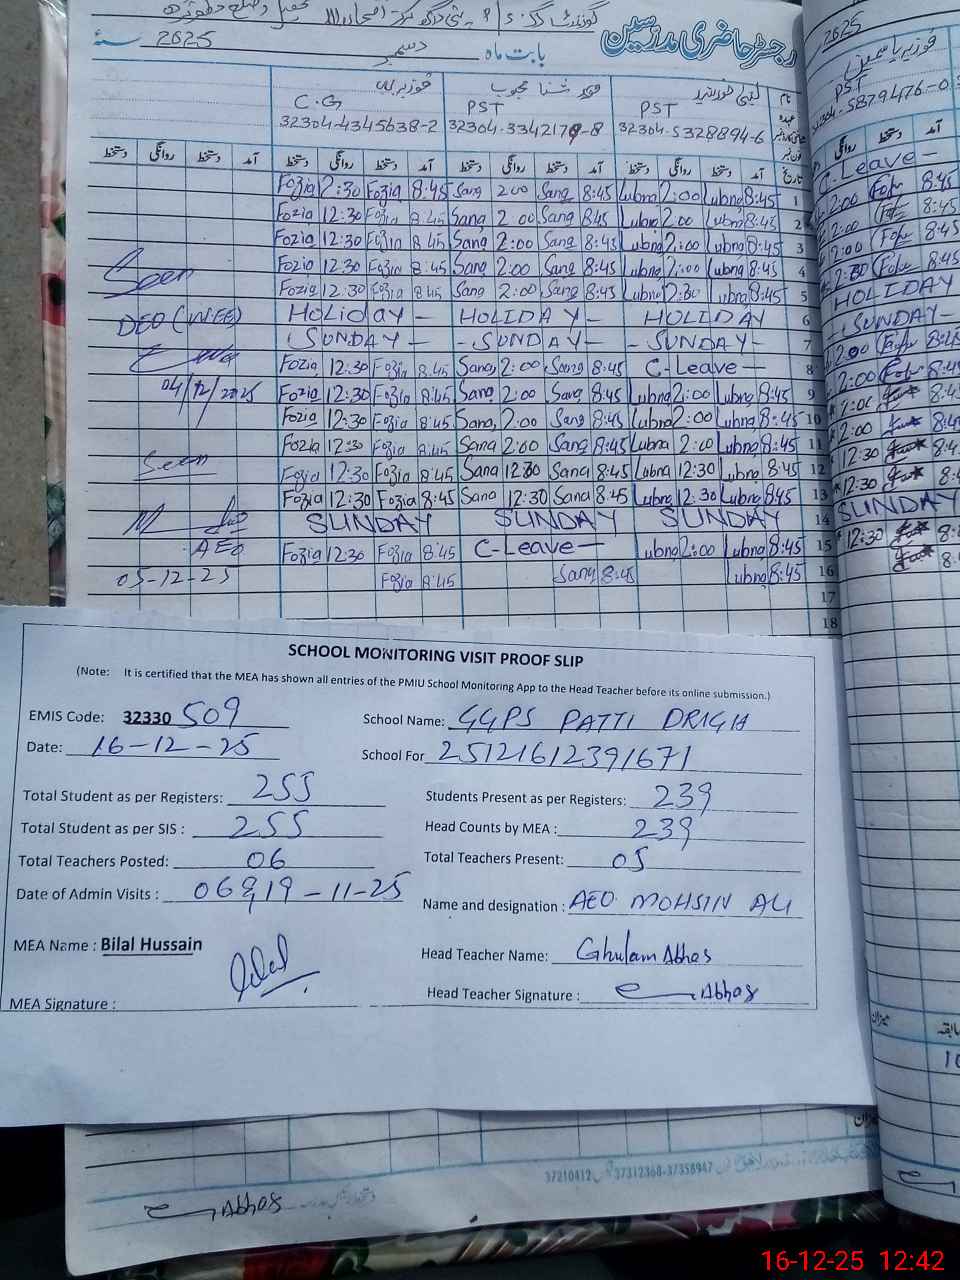 رجسٹر حاضری مدرسین
بابت ماہ دسمبر 2025
PST C.G PST PST
32304-4345638-2 32304-3342179-8 32304-5328894-6
آمد دستخط روانگی دستخط آمد دستخط روانگی دستخط آمد دستخط روانگی دستخط تاریخ
Fozia 2:30 Fozia 8:45 Sana 2:00 Sana 8:45 Lubna 2:00 Lubna 8:45 1
Fozia 12:30 Fozia 8:45 Sana 2:00 Sana 8:45 Lubna 2:00 Lubna 8:45 2
Fozia 12:30 Fozia 8:45 Sana 2:00 Sana 8:45 Lubna 2:00 Lubna 8:45 3
Fozia 12:30 Fozia 8:45 Sana 2:00 Sana 8:45 Lubna 2:00 Lubna 8:45 4
Seen Fozia 12:30 Fozia 8:45 Sana 2:00 Sana 8:45 Lubna 2:30 Lubna 8:45 5
DEO (W-EE) HOLIDAY – HOLIDAY – HOLIDAY 6
SUNDAY – - SUNDAY – - SUNDAY – 7
Fozia 12:30 Fozia 8:45 Sana 2:00 Sana 8:45 C-Leave – 8
04/12/2025 Fozia 12:30 Fozia 8:45 Sana 2:00 Sana 8:45 Lubna 2:00 Lubna 8:45 9
Fozia 12:30 Fozia 8:45 Sana 2:00 Sana 8:45 Lubna 2:00 Lubna 8:45 10
Fozia 12:30 Fozia 8:45 Sana 2:00 Sana 8:45 Lubna 2:00 Lubna 8:45 11
Seen Fozia 12:30 Fozia 8:45 Sana 12:30 Sana 8:45 Lubna 12:30 Lubna 8:45 12
Fozia 12:30 Fozia 8:45 Sana 12:30 Sana 8:45 Lubna 12:30 Lubna 8:45 13
SUNDAY SUNDAY SUNDAY 14
AEO Fozia 12:30 Fozia 8:45 C-Leave – Lubna 2:00 Lubna 8:45 15
05-12-25 Fozia 8:45 Sana 8:45 Lubna 8:45 16
17
18
2025
فوزیہ یاسمین
PST
32304-5879476-0
C-Leave –
2:00 8:45
2:00 8:45
2:00 8:45
2:30 8:45
HOLIDAY
SUNDAY –
2:00 8:45
2:00 8:45
2:00 8:45
2:00 8:45
12:30 8:45
12:30 8:4
SUNDAY
12:30 8:
8:
SCHOOL MONITORING VISIT PROOF SLIP
(Note: It is certified that the MEA has shown all entries of the PMIU School Monitoring App to the Head Teacher before its online submission.)
EMIS Code: 32330 509 School Name: GGPS PATTI DRIGH
Date: 16-12-25 School For 25121612391671
Total Student as per Registers: 255 Students Present as per Registers: 239
Total Student as per SIS : 255 Head Counts by MEA : 239
Total Teachers Posted: 06 Total Teachers Present: 05
Date of Admin Visits : 06&19-11-25 Name and designation : AEO MOHSIN ALI
MEA Name : Bilal Hussain Head Teacher Name: Ghulam Abbas
MEA Signature : Head Teacher Signature : Abbas
میزان
37210412 37312368-37358947
Abbas
16-12-25 12:42